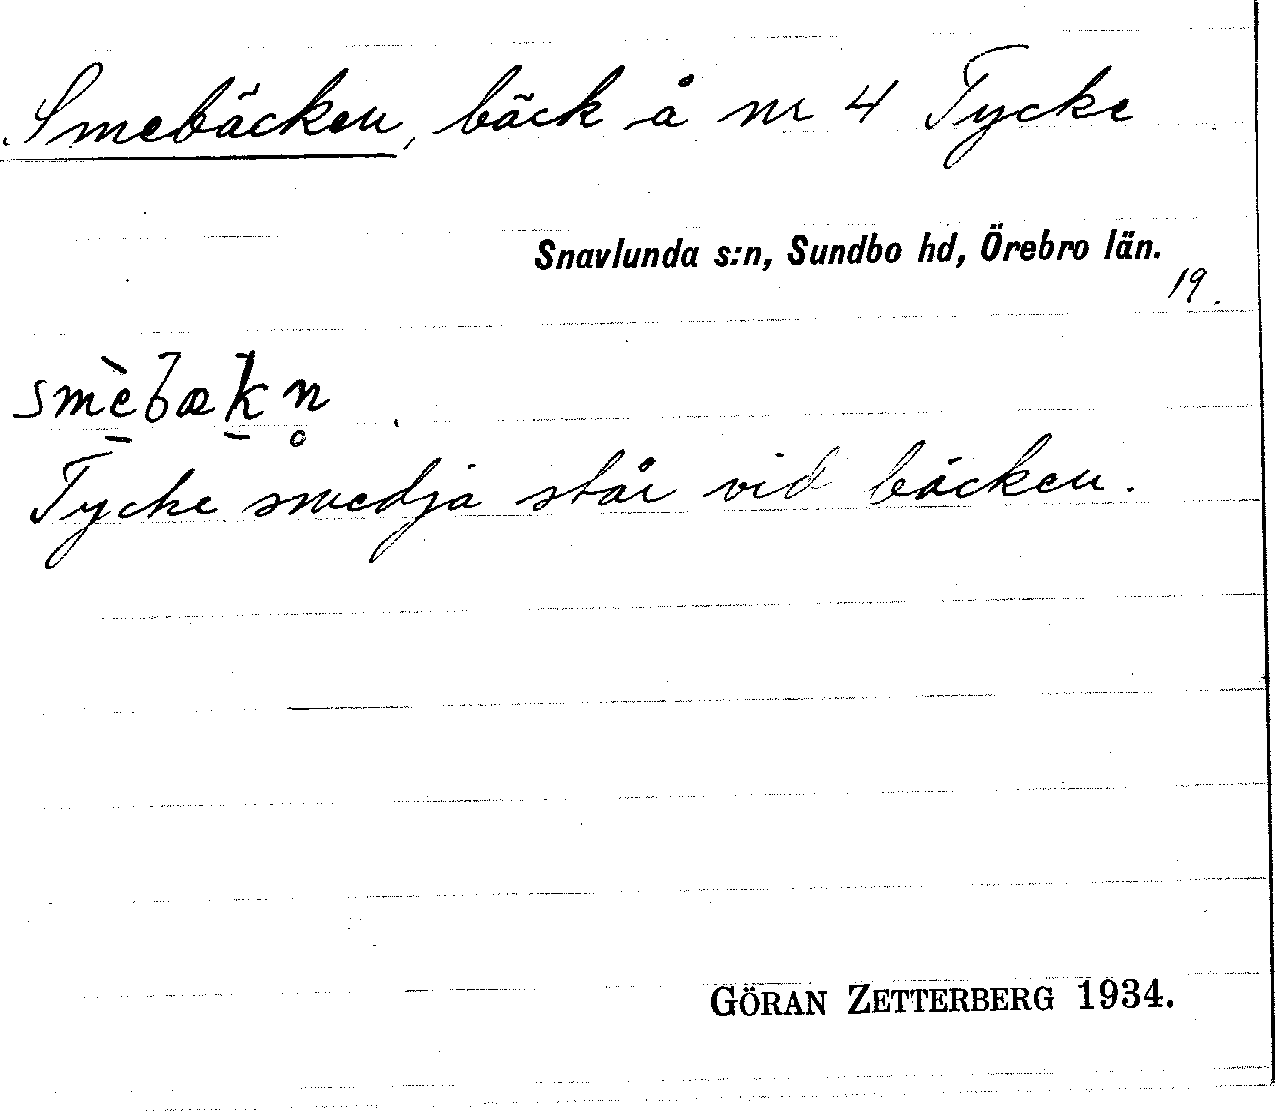 Smebäcken, bäck å nr 4 Tycke
Snavlunda s:n, Sundbo hd, Örebro län.
19.
smè̠bæk̠n̥.
Tycke smedja står vid bäcken.
GÖRAN ZETTERBERG 1934.